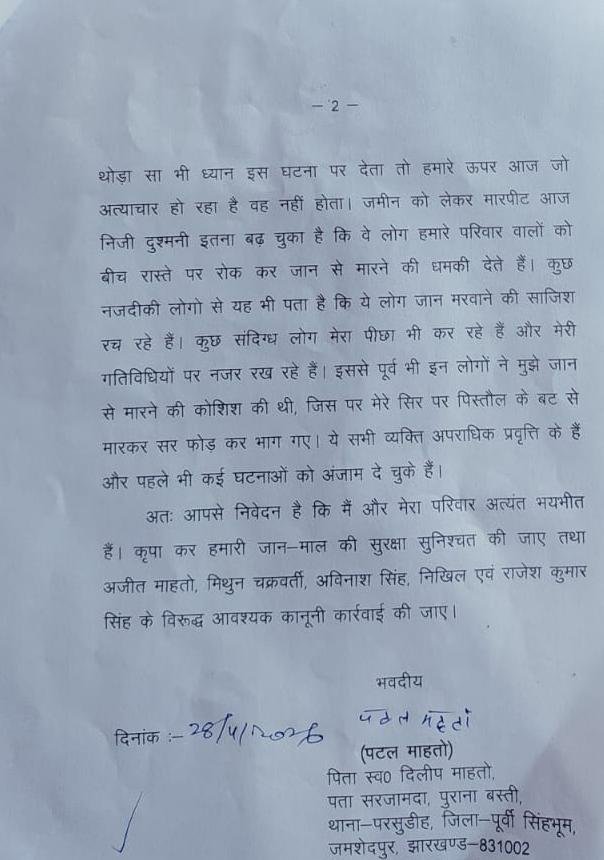 – 2 –
थोड़ा सा भी ध्यान इस घटना पर देता तो हमारे ऊपर आज जो
अत्याचार हो रहा है वह नहीं होता। जमीन को लेकर मारपीट आज
निजी दुश्मनी इतना बढ़ चुका है कि वे लोग हमारे परिवार वालों को
बीच रास्ते पर रोक कर जान से मारने की धमकी देते हैं। कुछ
नजदीकी लोगो से यह भी पता है कि ये लोग जान मरवाने की साजिश
रच रहे हैं। कुछ संदिग्ध लोग मेरा पीछा भी कर रहे हैं और मेरी
गतिविधियों पर नजर रख रहे हैं। इससे पूर्व भी इन लोगों ने मुझे जान
से मारने की कोशिश की थी, जिस पर मेरे सिर पर पिस्तौल के बट से
मारकर सर फोड़ कर भाग गए। ये सभी व्यक्ति अपराधिक प्रवृत्ति के हैं
और पहले भी कई घटनाओं को अंजाम दे चुके हैं।
अतः आपसे निवेदन है कि मैं और मेरा परिवार अत्यंत भयभीत
हैं। कृपा कर हमारी जान–माल की सुरक्षा सुनिश्चत की जाए तथा
अजीत माहतो, मिथुन चक्रवर्ती, अविनाश सिंह, निखिल एवं राजेश कुमार
सिंह के विरूद्ध आवश्यक कानूनी कार्रवाई की जाए।
भवदीय
दिनांक :– 28/4/2026
पटल महतो
(पटल माहतो)
पिता स्व0 दिलीप माहतो,
पता सरजामदा, पुराना बस्ती,
थाना–परसुडीह, जिला–पूर्वी सिंहभूम,
जमशेदपुर, झारखण्ड–831002